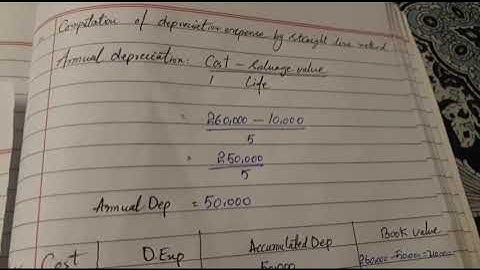 Computation of depreciation expense by straight line method
Annual depreciation: Cost - Salvage value
Life
= 260,000 - 10,000
5
= 250,000
5
Annual Dep = 50,000
Cost D.Exp Accumulated Dep Book value
50,000